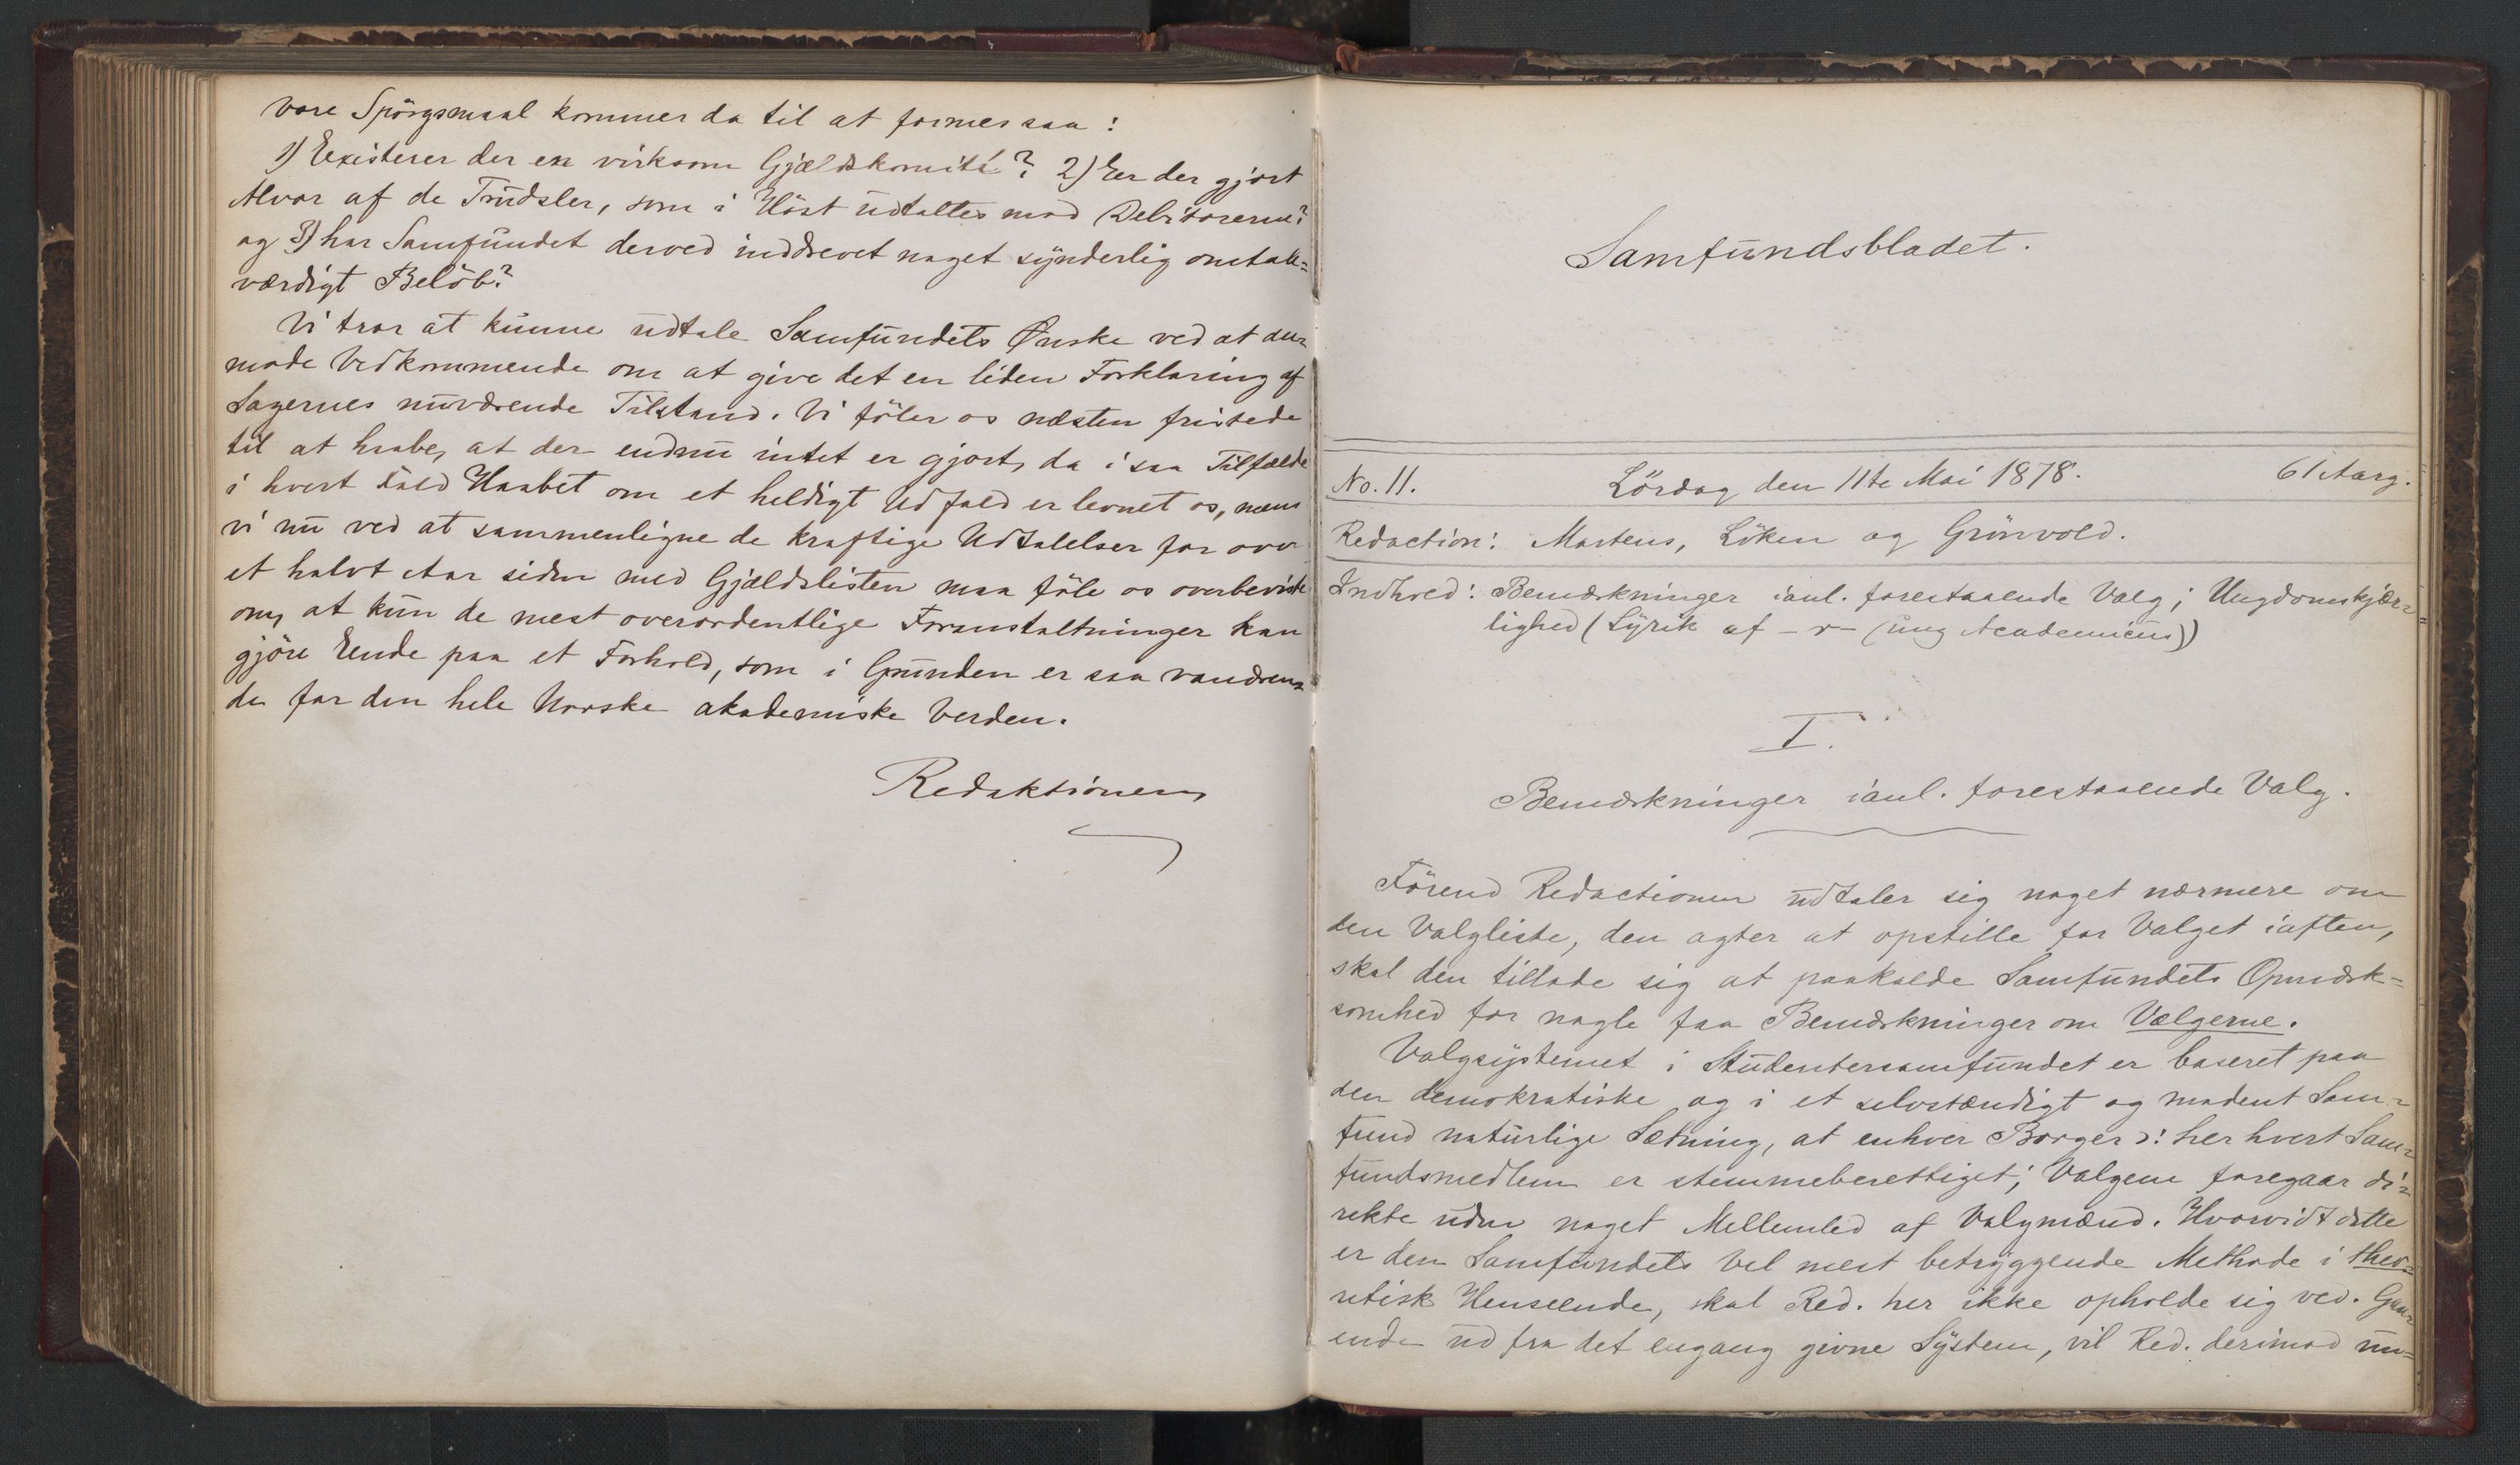 vore Spörgsmaal kommer da til at formes saa:
1) Existerer der en virksom Gjældskomité? 2) Er der gjort
Alvor af de Trudsler, som i Höst udtaltes mod Debitorerne?
og 3) har Samfundet derved inddrevet noget synderlig omtals=
værdigt Belöb?
Vi tror at kunne udtale Samfundets Ønske ved at an=
mode Vedkommende om at give det en liden Forklaring af
Sagernes nuværende Tilstand. Vi föler os næsten fristede
til at haabe, at der endnu intet er gjort, da i saa Tilfælde
i hvert Fald Haabet om et heldigt Udfald er levnet os, mens
vi nu ved at sammenligne de kraftige Udtalelser for over
et halvt Aar siden med Gjældslisten maa föle os overbeviste
om, at kun de mest overordentlige Foranstaltninger kan
gjöre Ende paa et Forhold, som i Grunden er saa vanæren=
de for den hele Norske akademiske Verden.
Redaktionen
Samfundsbladet.
No. 11. Lördag den 11te Mai 1878. 61 Aarg.
Redaction: Martens, Löken og Grönvold.
Indhold: Bemærkninger ianl. forestaaende Valg; Ungdomskjær=
lighed (Lyrik af -r- (ung Academicus))
I.
Bemærkninger ianl. forestaaende Valg.
Förend Redactionen udtaler sig noget nærmere om
den Valgliste, den agter at opstille for Valget iaften,
skal den tillade sig at paakalde Samfundets Opmærk=
somhed for nogle faa Bemærkninger om Vælgerne.
Valgsystemet i Studentersamfundet er baseret paa
den demokratiske og i et selvstændigt og modent Sam=
fund naturlige Sætning, at enhver Borger ɔ: her hvert Sam=
fundsmedlem er stemmeberettiget; Valgene foregaar di=
rekte uden noget Mellemled af Valgmænd. Hvorvidt dette
er den Samfundets Vel mest betryggende Methode i theo=
retisk Henseende, skal Red. her ikke opholde sig ved. Gaa=
ende ud fra det engang givne System, vil Red. derimod un=